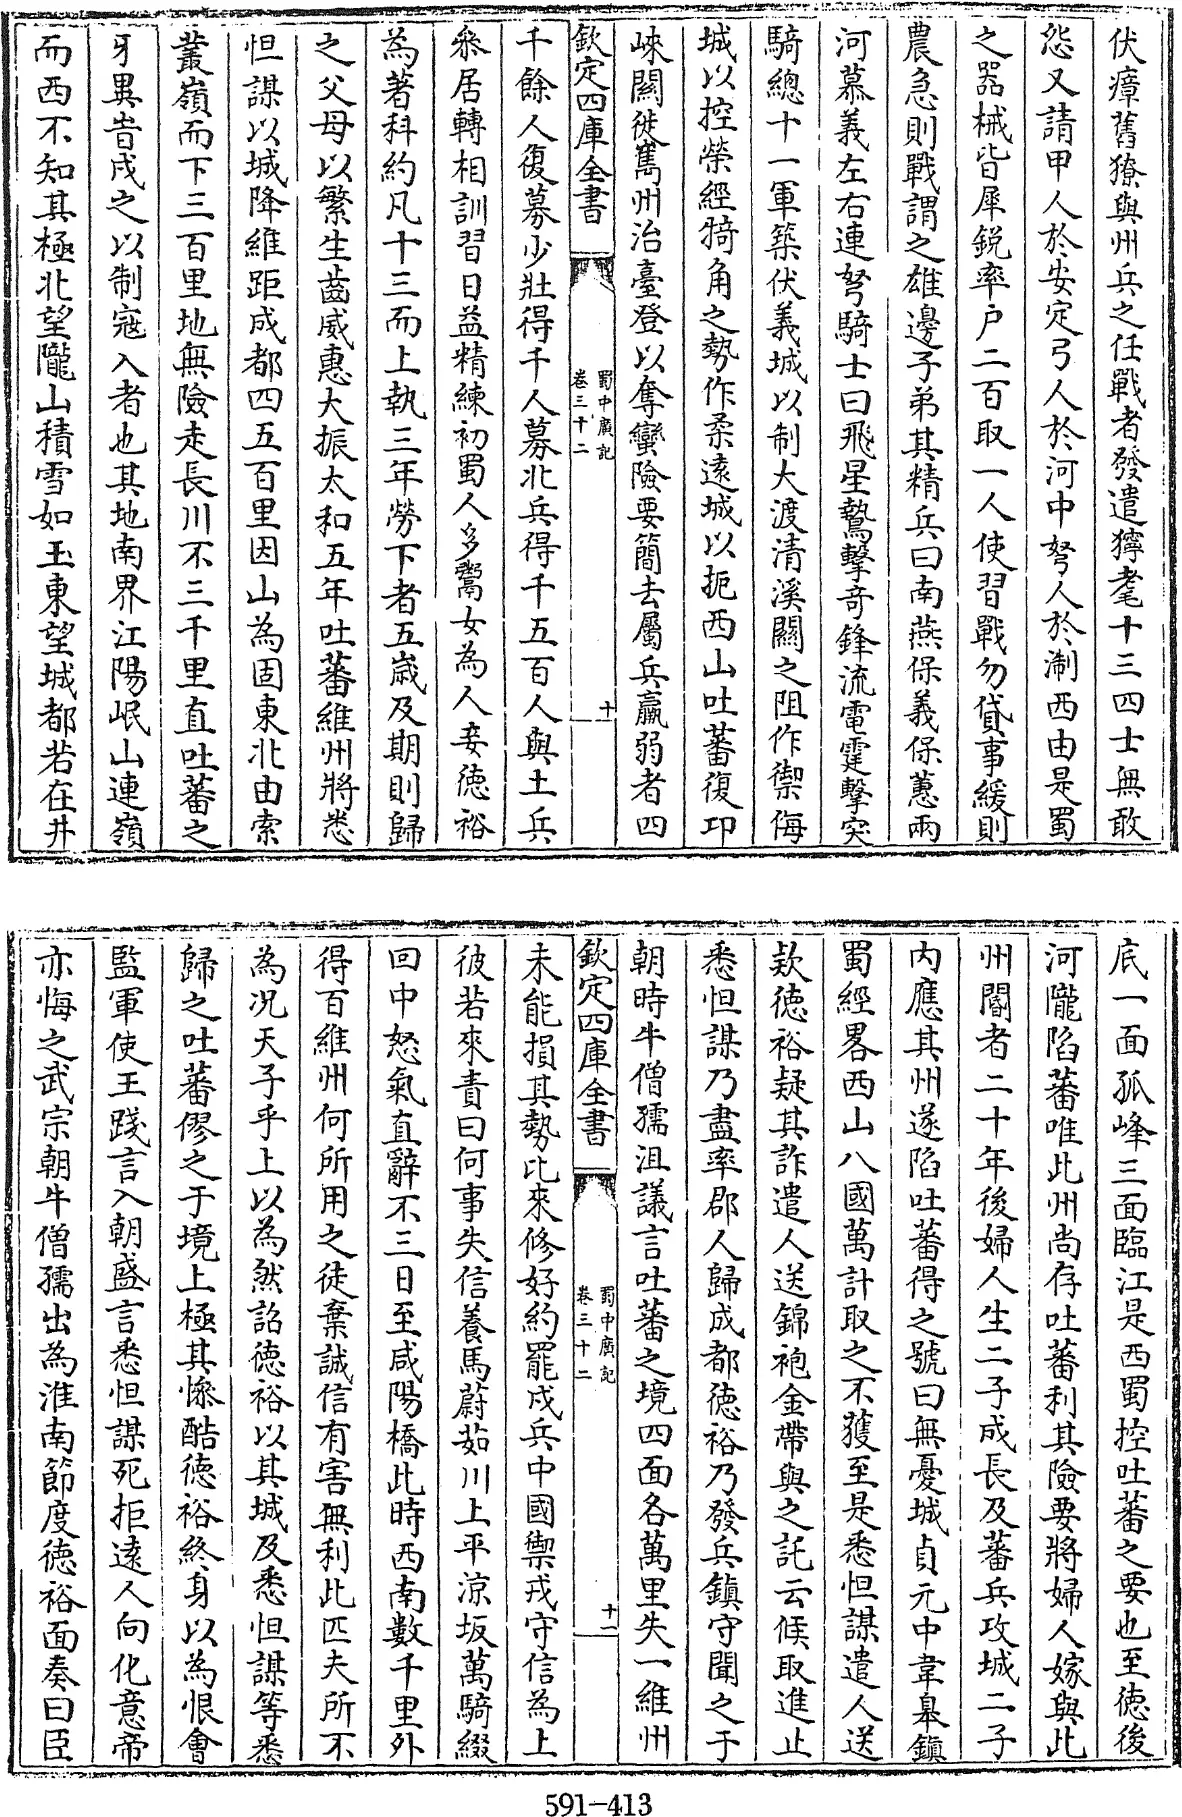 伏瘴舊獠與州兵之任戰者發遣獰耄十三四士無敢
怨又請甲人於安定弓人於河中弩人於淛西由是蜀
之器械皆犀銳率户二百取一人使習戰勿貸事緩則
農急則戰謂之雄邊子弟其精兵曰南燕保義保惠兩
河慕義左右連弩騎士曰飛星鷙擊竒鋒流電霆擊突
騎總十一軍築伏義城以制大渡清溪闗之阻作禦侮
城以控榮經犄角之勢作柔逺城以扼西山吐蕃復卭
崍闗徙嶲州治臺登以奪蠻險要簡去屬兵羸弱者四
欽定四庫全書
蜀中廣記
卷三十二
十
千餘人復募少壯得千人募北兵得千五百人與土兵
叅居轉相訓習日益精練初蜀人多鬻女為人妾徳裕
為著科約凡十三而上執三年勞下者五歲及期則歸
之父母以繁生齒威惠大振太和五年吐蕃維州將悉
怛謀以城降維距成都四五百里因山為固東北由索
叢嶺而下三百里地無險走長川不三千里直吐蕃之
牙異旹戍之以制寇入者也其地南界江陽岷山連嶺
而西不知其極北望隴山積雪如玉東望城都若在井
底一面孤峰三面臨江是西蜀控吐蕃之要也至徳後
河隴陷蕃唯此州尚存吐蕃利其險要將婦人嫁與此
州閽者二十年後婦人生二子成長及蕃兵攻城二子
内應其州遂陷吐蕃得之號曰無憂城貞元中韋臯鎮
蜀經畧西山八國萬計取之不獲至是悉怛謀遣人送
欵徳裕疑其詐遣人送錦袍金帶與之託云候取進止
悉怛謀乃盡率郡人歸成都徳裕乃發兵鎮守聞之于
朝時牛僧孺沮議言吐蕃之境四面各萬里失一維州
欽定四庫全書
蜀中廣記
卷三十二
十一
未能損其勢比來修好約罷戍兵中國禦戎守信為上
彼若來責曰何事失信養馬蔚茹川上平涼坂萬騎綴
回中怒氣直辭不三日至咸陽橋此時西南數千里外
得百維州何所用之徒棄誠信有害無利此匹夫所不
為况天子乎上以為然詔徳裕以其城及悉怛謀等悉
歸之吐蕃僇之于境上極其慘酷徳裕終身以為恨會
監軍使王踐言入朝盛言悉怛謀死拒逺人向化意帝
亦悔之武宗朝牛僧孺出為淮南節度徳裕面奏曰臣
591-413